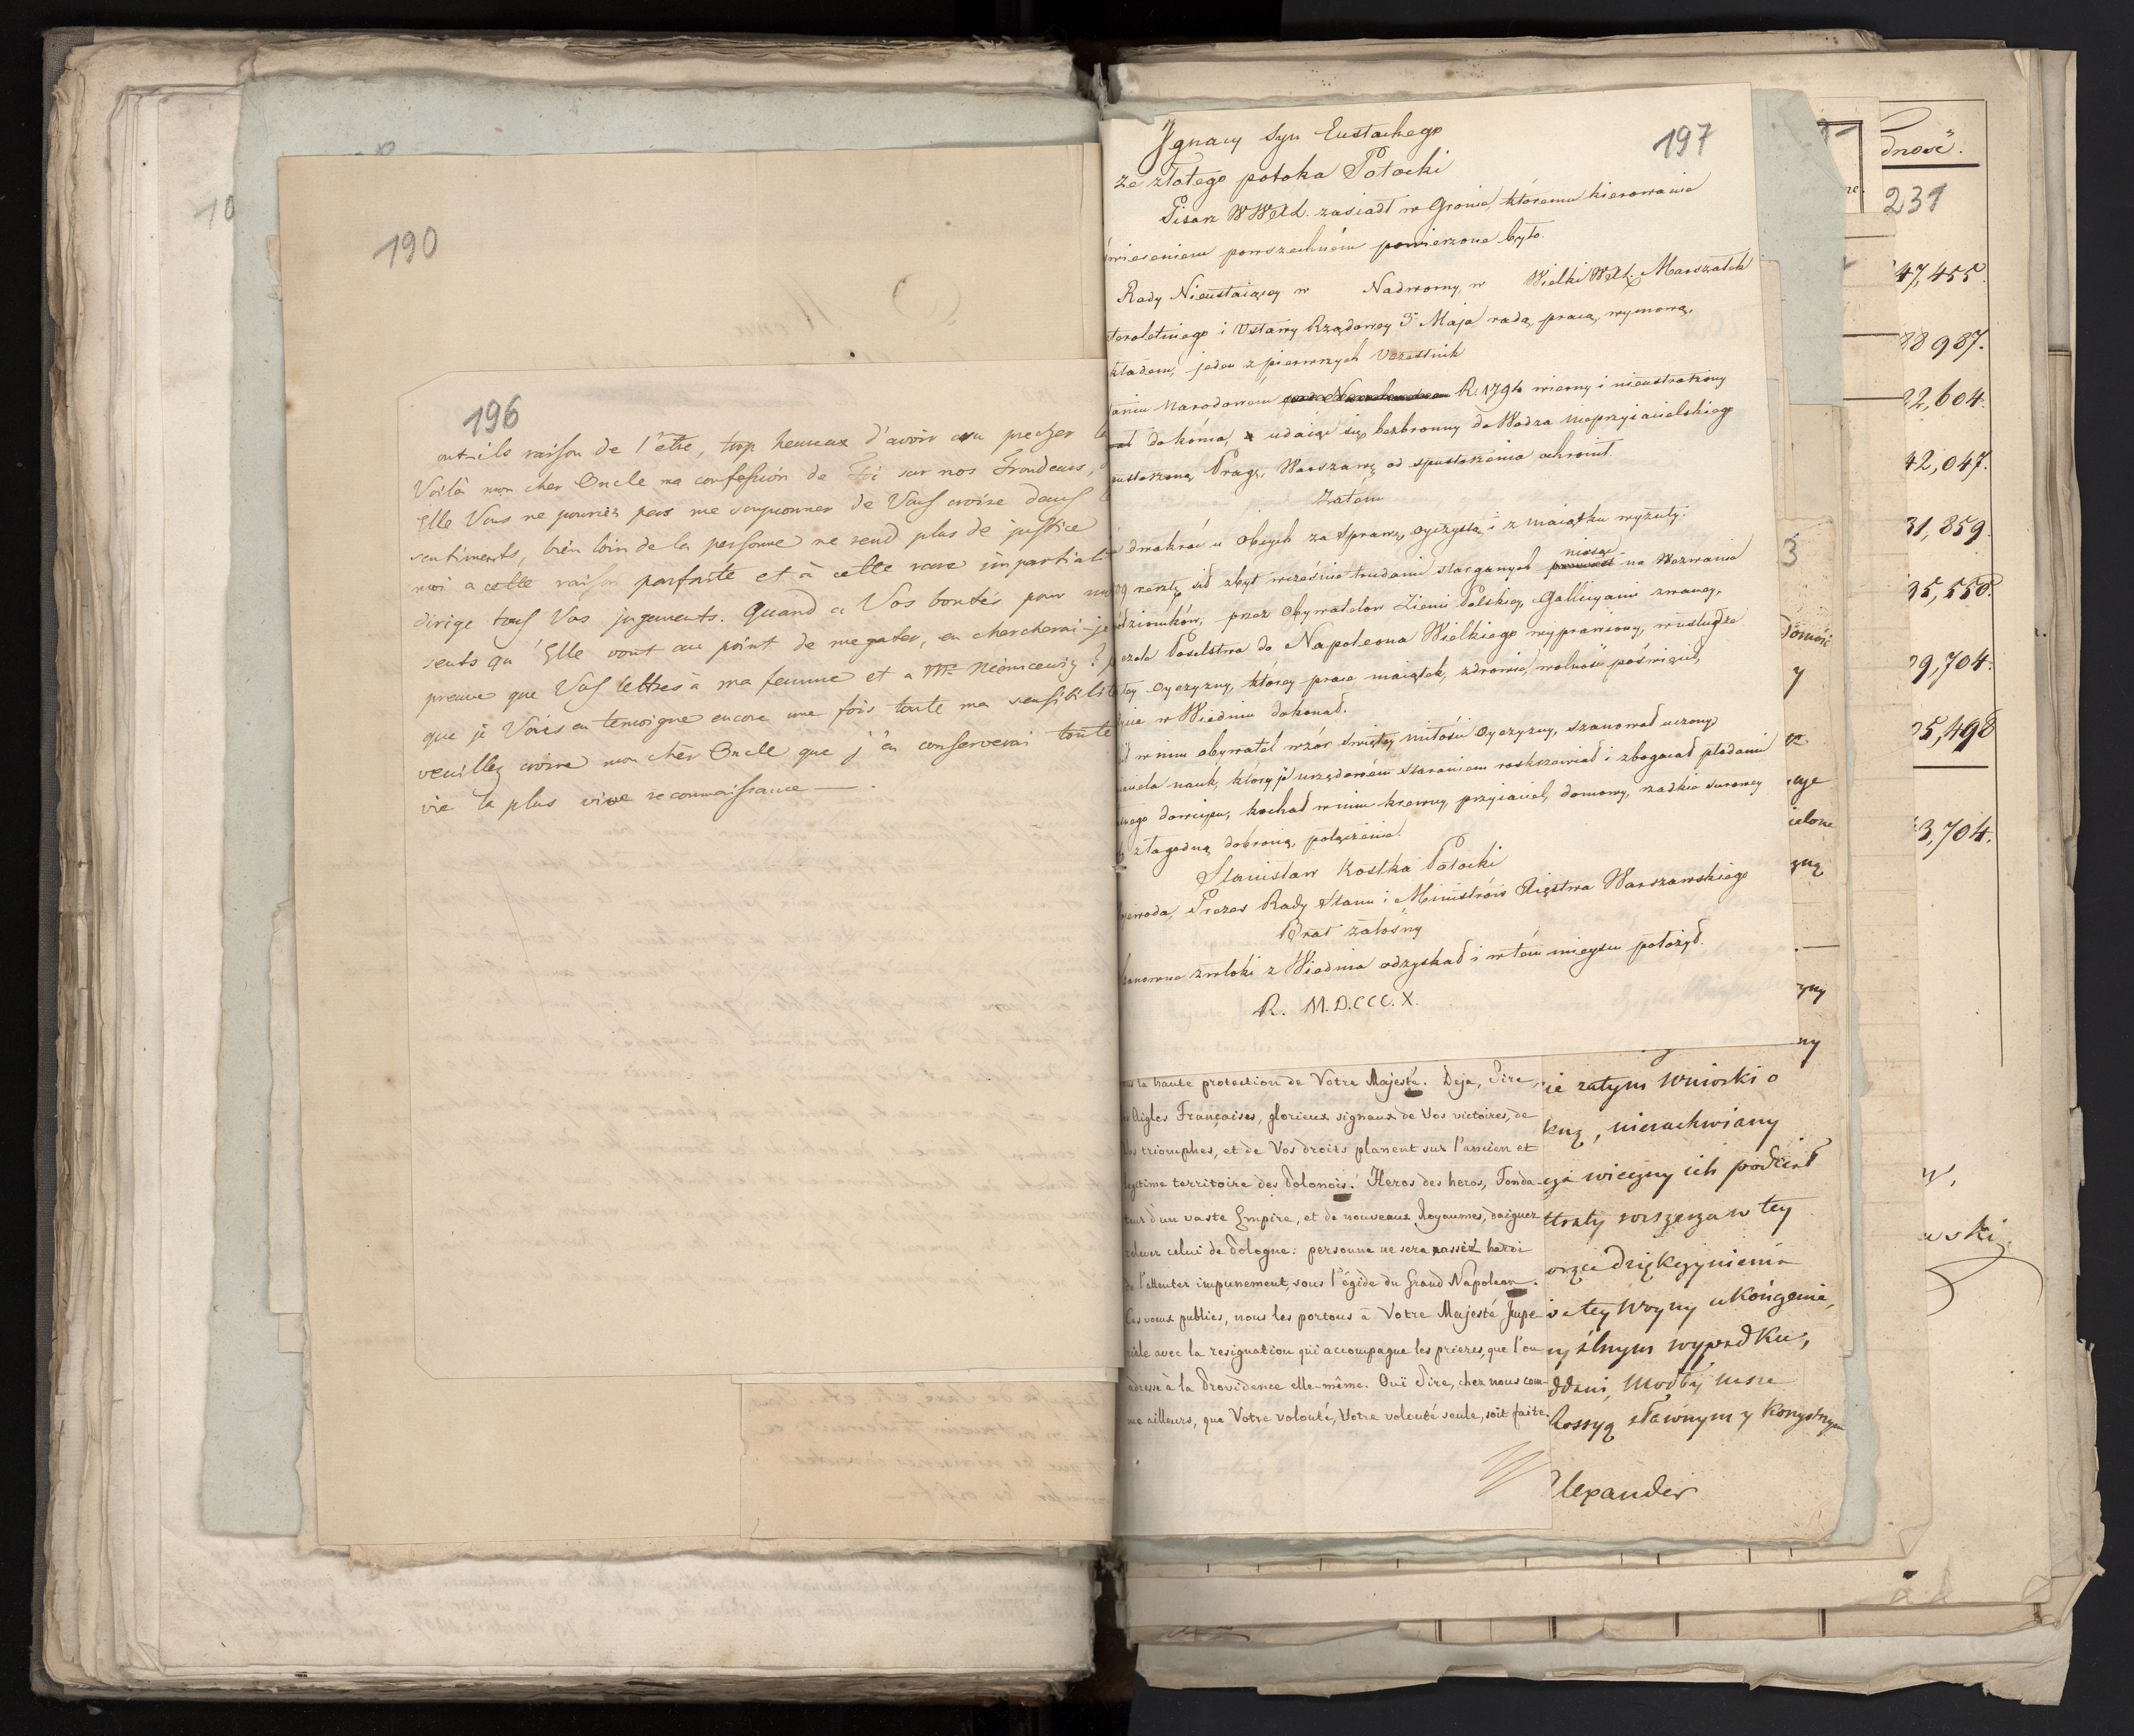 190
196
ont-ils raison de l'etre, trop heureux d'avoir
Voilà mon cher Oncle ma confession de Foi sur nos Frondeurs,
Elle Vous ne pouriez pas me soupconner de Vous croire dans
sentiments, bien loin de la personne ne rend plus de justice
moi a cette raison parfaite et à cette rare impartiali
dirige tous Vos jugements. Quand a Vos bontés pour
sents qu'Elle vont au point de me gater, en chercherai-je
preuve que Vos lettres à ma femme et a Mr. Niemcewiz?
que je Vous en temoigne encore une fois toute ma sensibilité
veuillez croire mon cher Oncle que j'en conserverai toute
vie la plus vive reconnaissance — .
197
Ignacy Syn Eustachego
ze złotego potoka Potocki
Pisarz WWXL. zasiadł w Gronie, któremu kierowanie
wieceniem powszechném powierzone było.
Rady Nieustaiącey w Nadworny, w Wielki WXL. Marszałek
teroletniego i Ustawy Rządowey 3 Maja radą, pracą, wymową,
kładem, jeden z pierwszych Uczestnik
aniu Narodowém R. 1794 wierny i nieustraszony
ał do końca, udaiąc się bezbronny do Wodza nieprzyiacielskiego
pustoszoną Pragę, Warszawę od spustoszenia ochronił.
Zatém
dwakroć u Obcych za Sprawę oyczystą i z maiątku wyzuty.
resztę sił zbyt wcześnie trudami starganych niosąc na Wezwanie
dzioników, przez Obywatelow Ziemi Polskiey, Gallicyami zwaney,
czele Poselstwa do Napoleona Wielkiego wyprawiony, w usłudze
tey oyczyzny, którey prace maiątek, zdrowie, wolność poświęcił,
życie w Wiedniu dokonał.
w nim obywatel wzór świętey miłości oyczyzny, szanował uczony
ciela nauk, który je urzędowém staraniem rozkrzewiał i zbogacał płodami
nego dowcipu, kochał w nim krewny, przyiaciel, domowy, rzadkie surowey
z łagodną dobrocią, połączenie.
Stanisław Kostka Potocki
ewoda, Prezes Rady Stanu i Ministrów Xięstwa Warszawskiego
Brat żałosny
zanowne zwłoki z Wiednia odzyskał i w tém mieyscu położył.
R. M.D.CCC.X.
la haute protection de Votre Majesté. Deja, Sire,
Aigles Françaises, glorieux signaux de Vos victoires, de
Vos triomphes, et de Vos droits planent sur l'ancien et
legitime territoire des Polonois. Heros des heros, Fonda-
teur d'un vaste Empire, et de nouveaux Royaumes, daignez
relever celui de Pologne: personne ne sera assez hardi
de l'attenter impunement, sous l'égide du Grand Napoleon.
Ces voeux publics, nous les portons à Votre Majesté Impe-
riale avec la resignation qui accompagne les prieres, que l'on
adresse à la Providence elle-même. Oui Sire, chez nous com-
me ailleurs, que Votre volonté, Votre volonté seule, soit faite.
ie zatym wnioski o
kną, niezachwiany
wieczny ich podział
w tey
dziękczynienia
tey Woyny ukończenie,
ślnym wypadku,
ddani, modły nasze
Rossyą sławnym y korzystnym
Alexander
dność.
231
47,455
88 987.
22,604.
42,047.
31,859.
35,550.
09,704.
05,498
3,704.
3
domość
y
cielone
ny
wski